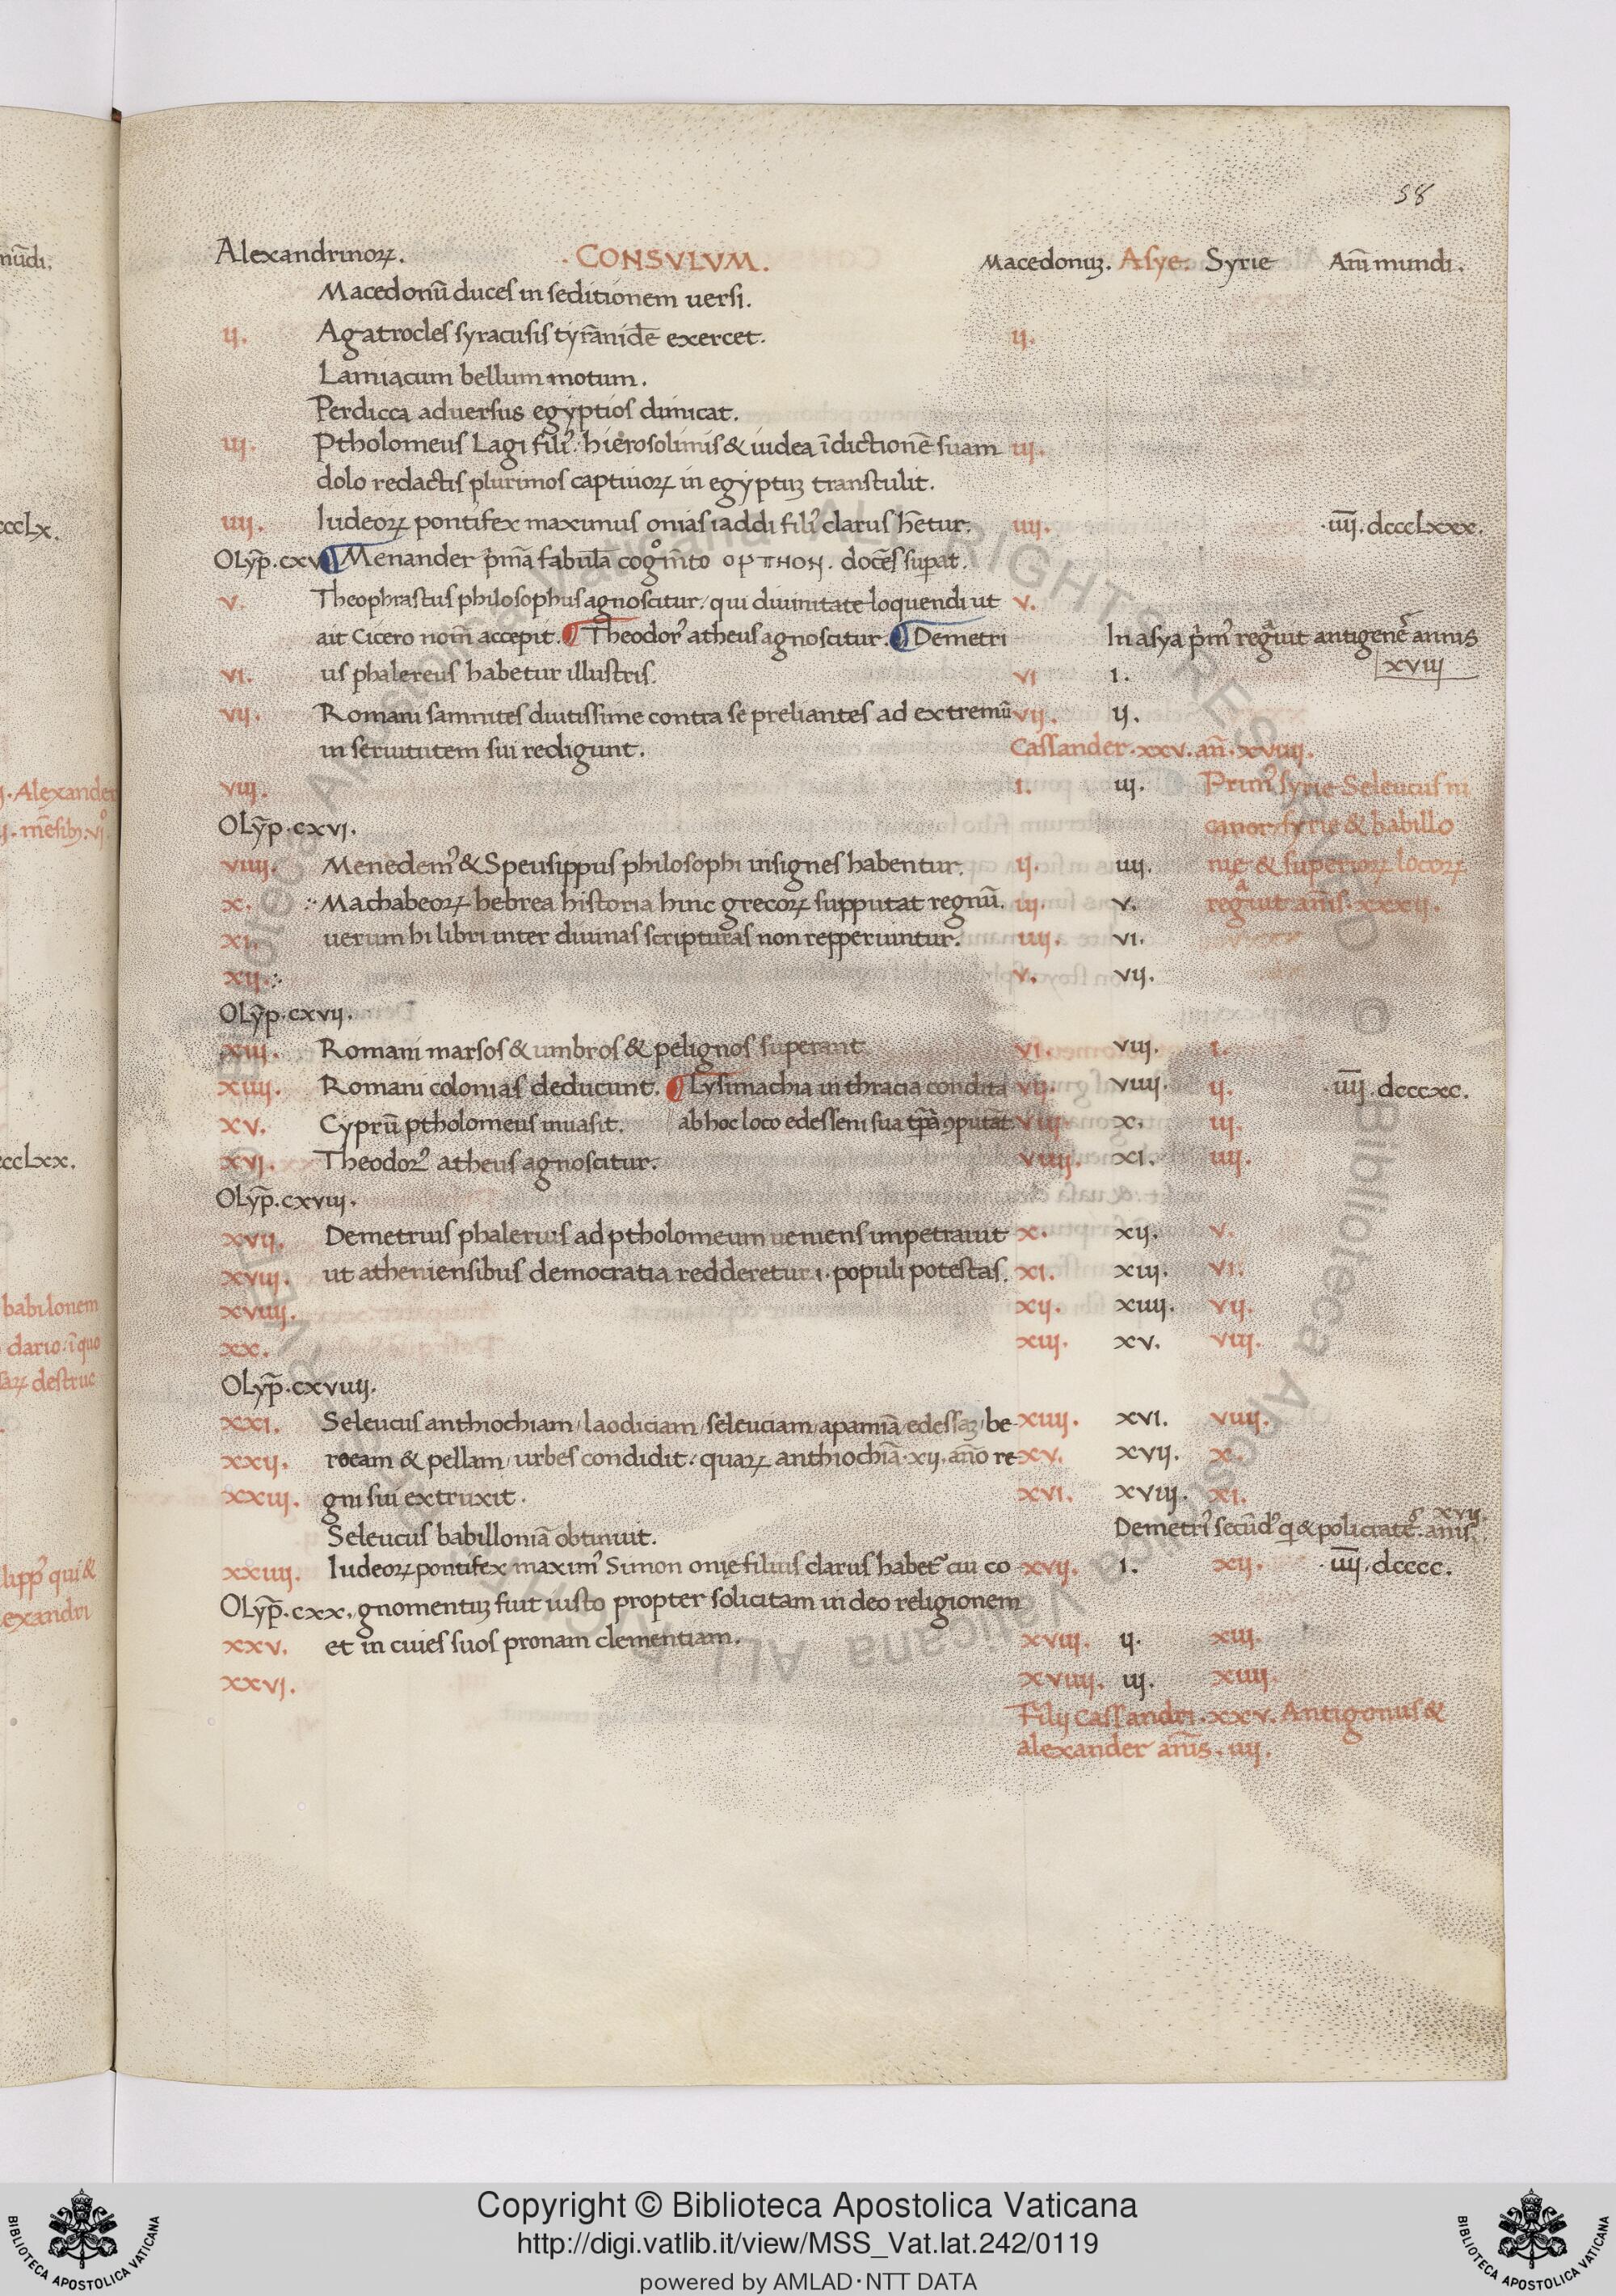 58
Alexandrinoꝝ. · CONSVLVM. Macedonuꝫ. Asye. Syrie Ani mundi.
Macedonū duces in seditionem uersi.
ij. Agatrocles syracusis tyrānidē exercet. ij.
Lamiacum bellum motum.
Perdicca aduersus egyptios dimicat.
iij. Ptholomeus Lagi filiꝰ hierosolimis & iudea ī dictionē suam iij.
dolo redactis plurimos captiuoꝝ in egyptuꝫ transtulit.
iiij. Iudeoꝝ pontifex maximus onias iaddi filiꝰ clarus hētur. iiij. ·iiij. dccclxxx.
Olȳp. cxv ¶ Menander pīmā fabulā cognōīto OPTHON. docēs supat.
v. Theophrastus philosophus agnoscitur/ qui diuinitate loquendi ut v.
ait Cicero nom̄ accepit. ¶ Theodorꝰ atheus agnoscitur. ¶ Demetri In asya pⁱmꝰ regᵃuit antigenēˢ annis
xviij
vi. us phalereus habetur illustris. vi i.
vij. Romani samnites diutissime contra se preliantes ad extremū vij. ij.
in seruitutem sui redigunt. Cassander·xxv. an̄·xviiij.
viij. i. iij. Primꝰ syrie Seleucus ni
Olȳp·cxvi. canor/syrie & babillo
viiij. Menedemꝰ & Speusippus philosophi insignes habentur. ij. iiij. nię & superioꝝ locoꝝ
x. ·:·Machabeoꝝ hebrea historia hinc grecoꝝ supputat regnū. iij. v. regᵃuit an̄is·xxxij.
xi. uerum hi libri inter diuinas scripturas non repperiuntur. iiij. vi.
xij.·:· v. vij.
Olȳp·cxvij.
xiij. Romani marsos & umbros & pelignos superant vi. viij. i.
xiiij. Romani colonias deducunt. ¶ Lysimachia in thracia condita vij. viiij. ij. ·iiij. dcccxc.
xv. Cyprū ptholomeus inuasit. ab hoc loco edesseni sua tp̄a ꝯputāt viij x. iij.
xvi. Theodorꝰ atheus agnoscitur. viiij. xi. iiij.
Olȳp·cxviij.
xvij. Demetrius phalerius ad ptholomeum ueniens impetrauit x. xij. v.
xviij. ut atheniensibus democratia redderetur·i·populi potestas. xi. xiij. vi.
xviiij. xij. xiiij. vij.
xx. xiij. xv. viij.
Olȳp·cxviiij.
xxi. Seleucus anthiochiam/ laodiciam/ seleuciam/ apamiā/ edessaꝫ/ be- xiiij. xvi. viiij.
xxij. roeam & pellam/ urbes condidit: quaꝝ anthiochiā·xij. an̄o re- xv. xvij. x.
xxiij. gni sui extruxit. xvi. xviij. xi.
Seleucus babilloniā obtinuit. Demetriꝰ secūdꝰ q̄ & policratēˢ. an̄is xvij.
xxiiij. Iudeoꝝ pontifex maximꝰ Simon onię filius clarus habet᷑ cui co xvij. i. xij. ·iiij. dcccc.
Olȳp·cxx. gnomentuꝫ fiut iusto propter solicitam in deo religionem
xxv. et in ciuies suos pronam clementiam. xviij. ij. xiij.
xxvj. xviiij. iij. xiiij.
Filij Cassandri·xxv. Antigonus &
alexander an̄is. iiij.
mūdi.
cccLx.
ij. Alexander
ij. mēsib; vi°
cccLxx.
babilonem
dario: ī quo
saꝝ destruc
lippꝰ qui &
lexandri
Copyright © Biblioteca Apostolica Vaticana
http://digi.vatlib.it/view/MSS_Vat.lat.242/0119
powered by AMLAD · NTT DATA
BIBLIOTECA APOSTOLICA VATICANA
BIBLIOTECA APOSTOLICA VATICANA